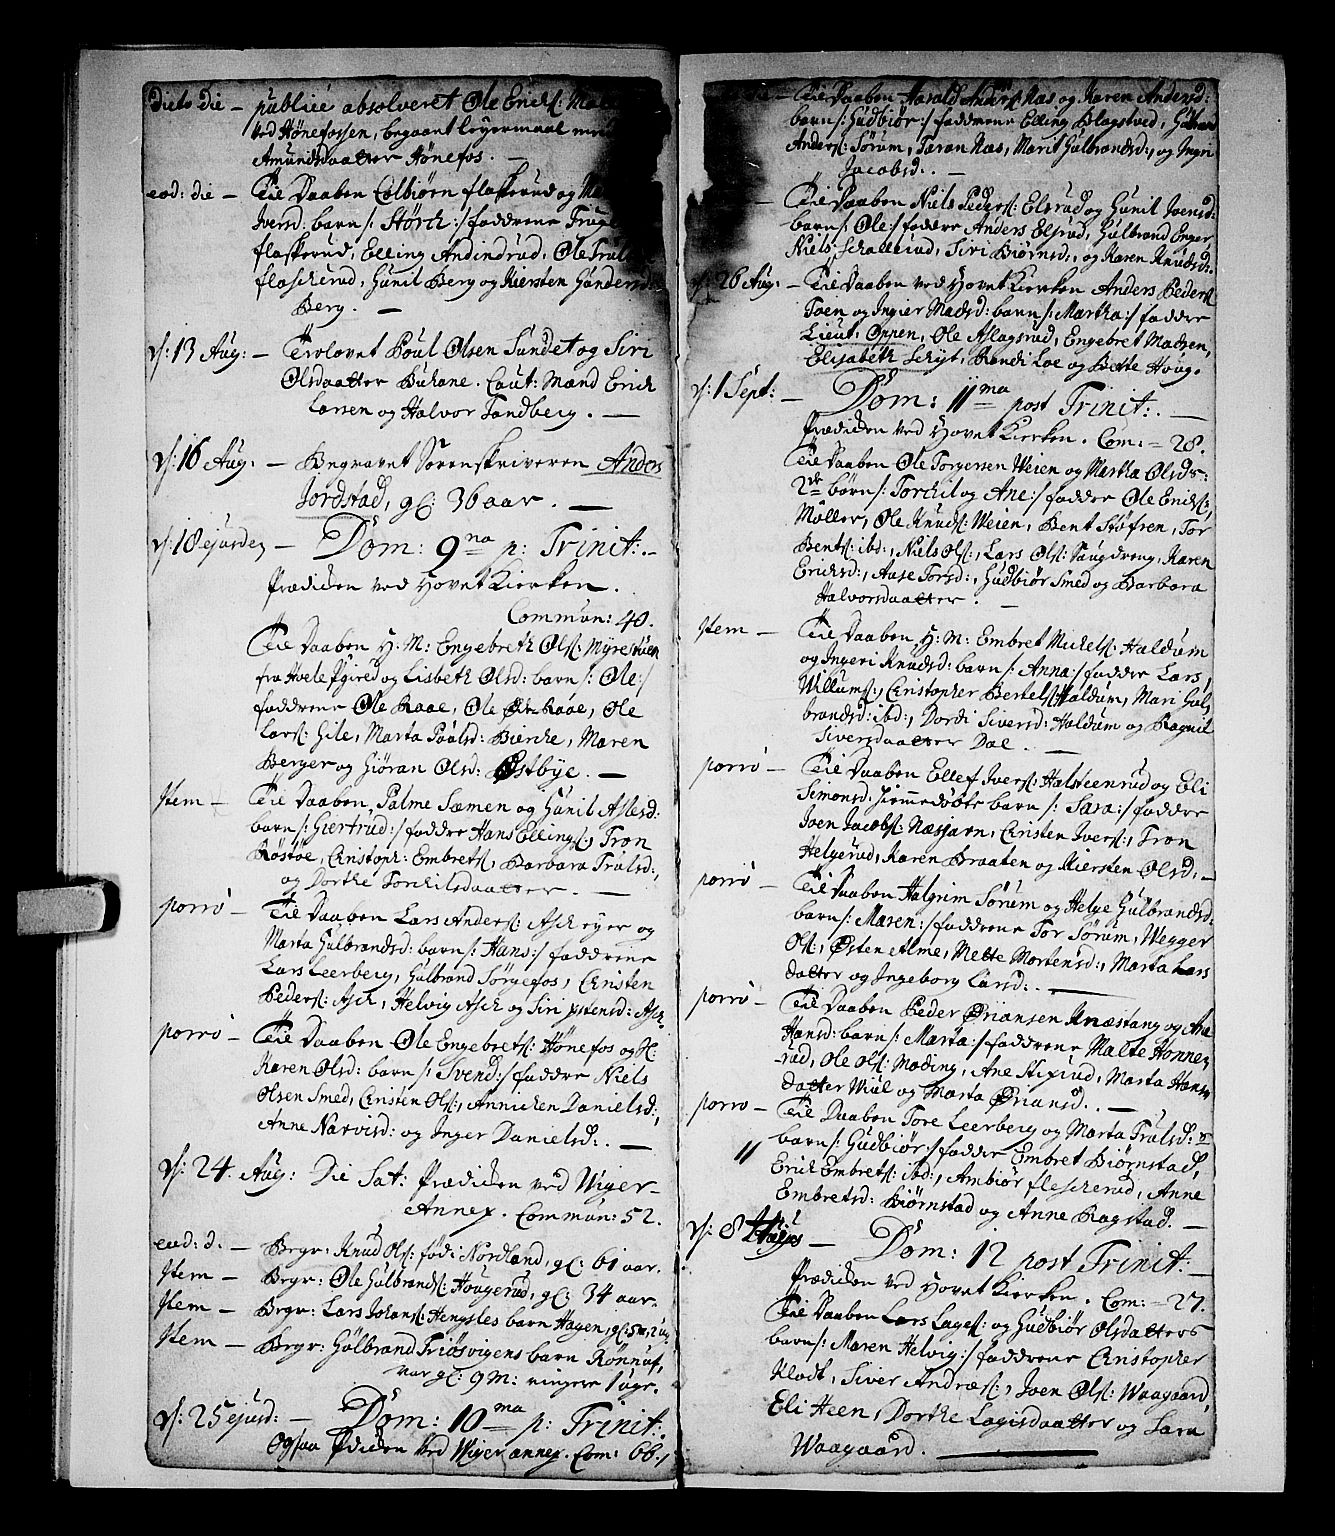 dicto die - publicè absolveret Ole Ericks:
ved Hønefossen, begaaet leyermaal med
Amundsdaatter Hønefos. -
eod: die - Til Daaben Colbiørn flaskerud og
Iversd: barn /: Störck :/ faddrene
flaskerud, Elling Andindrud, Ole
flaskerud, Gunil Berg og Kiersten Gundersd:
Berg. -
d: 13 Aug: - Trolovet Poul Olsen Sundet og Siri
Olsdaatter Buhane. Caut: Mænd Erich
Larsen og Halvor Tandberg. -
d: 16 Aug: - Begravet Sorenskriveren Anders
Jordstad, gl: 36 aar. -
d: 18 ejusdem - Dom: 9na p: Trinit: -
Prædiken ved Hovet Kierken.
Commun: 40.
Til Daaben H. M: Engebreth Ols: Myrestuen
fra Hole Pgield og Lisbeth Olsd: barn /: Ole :/
faddrene Ole Raae, Ole Raae, Ole
Lars: Hile, Marta Paalsd: Bierke, Maren
Berger og Giöran Olsd: Østbye. -
Item - Til Daaben Palme Sæmen og Gunil Aslesd:
barn /: Giertrud :/ faddre Hans Ellings:, Tron
Röstöe, Christoph: Embrets:, Barbara Trulsd:,
og Dorthe Torchilsdaatter. -
porro - Til Daaben Lars Anders: Asch eyer og
Marta Gulbrandsd: barn /: Hans :/ faddrene
Lars Leerberg, Gulbrand Sörgefos, Christen
Peders: Asch, Helvig Asch og Siri xstensd: Asch
porro - Til Daaben Ole Engebrets: Hönefos og
Karen Olsd: barn /: Svend :/ faddre Niels
Olsen Smed, Christen Ols:, Annichen Danielsd:,
Anne Narvisd: og Inger Danielsd: . -
d: 24. Aug: Die Sat: Prædiken ved Wiger-
Annex. Commun: 52.
eod: d. - Begr: Knud Ols: föd i Nordland, gl: 61 aar.
Item - Begr: Ole Gulbrands: Hougerud, gl: 34 aar.
Item - Begr: Lars Johans: Hengsles barn Hagen, gl:
Item - Begr: Gulbrand Triösvigens barn Rönnu,
var gl: 9 M: ringere 1 uge.
d: 25 ejusd: - Dom: 10ma p: Trinit:
Ogsaa Pdiken ved Wiger annex. Com: 66.
- Til Daaben Harald Anders: Næs og Karen Andersd:
barn /: Gudbiör :/ faddrene Elling Blagsted,
Anders: Sørum, Taran Næs, Marit Gulbrandsd:, og
Jacobsd: . -
- Til Daaben Niels Peders: Elsrud og Gunil Iversd:
barn /: Ole :/ faddre Anders Elsrud, Gulbrand Enger,
Niels: Schallerud, Siri Biörnsd:, og Karen Knudsd:.
d: 26 Aug: - Til Daaben ved Hovet Kierken Anders Peders:
Toen og Ingier Madsd: barn /: Martha :/ faddre
Lieut. Oppen, Ole Aslagsrud, Engebret Madsen,
Elisabeth Schyt, Randi Loe og Berte Houg.
d: 1 Sept: - Dom: 11ma post Trinit: . -
Prædiken ved Hovet Kierken. Com: = 28.
Til Daaben Ole Torgersen Weien og Martha Olsds:
2de börn /: Torchil og Ane :/ faddre Ole Ericks:,
Möller, Ole Knuds: Weien, Bent Stöfren, Tor
Bents: ibd:, Niels Ols:, Lars Ols: Saugdreng, Karen
Ericksd:, Aase Torsd:, Gudbiör Smed og Barbara
Halvorsdaatter. -
Item - Til Daaben H: M: Embret Mickels: Haldum
og Ingeri Knudsd: barn /: Anna :/ faddre Lars,
Willums:, Christopher Bertels: Haldum, Mari Gul-
brandsd: ibd:, Dordi Siversd: Haldum og Ragnil
Siversdaatter Dal. -
porro - Til Daaben Ellef Ivers: Halsteenrud og Eli
Simonsd: barn /: Sara :/ faddre
Joen Jacobs: Næsjarn, Christen Ivers:, Tron
Helgerud, Karen Braaten og Kiersten Olsd: . -
porro - Til Daaben Halgrim Sörum og Helge Gulbrandsd:
barn /: Maren :/ faddrene Tor Sörum, Wegger
Ols:, Østen Alme, Mette Mortensd:, Marta Lars
datter og Ingeborg Larsd: . -
porro - Til Daaben Peder Øriansen Knæstang og Ane
Hansd: barn /: Marta :/ faddrene Malte Honne-
-rud, Ole Ols: Moding, Ane Stixrud, Marta Hans
datter Wiul og Marta Øriansd: . -
porro - Til Daaben Tore Leerberg og Marta Trulsd:
barn /: Gudbiör :/ faddre Embret Biörnstad,
Erich Embrets: ibd:, Ambiör fleskerud, Anne
Embretsd: Biörnstad og Anne Ragstad. -
d: 8 - Dom: 12 post Trinit: -
Prædiken ved Hovet Kierken. Com: = 27.
Til Daaben Lars Lages: og Gudbiör Olsdatters
barn /: Maren Helvig :/ faddrene Christopher
Klodt, Siver Andræs:, Joen Ols: Waagaard,
Eli Heen, Dorthe Lagisdaatter og Sara
Waagaard.